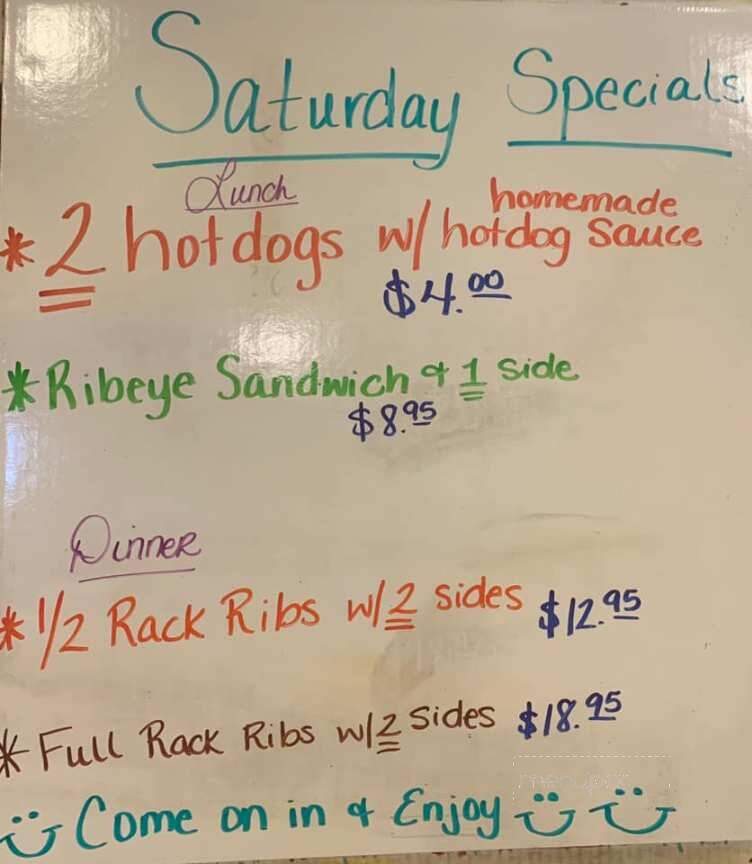 Saturday Specials
Lunch
* 2 hotdogs w/ homemade hotdog Sauce
$4.00
* Ribeye Sandwich & 1 side
$8.95
Dinner
* 1/2 Rack Ribs w/2 sides $12.95
* Full Rack Ribs w/2 sides $18.95
Come on in & Enjoy
menupix